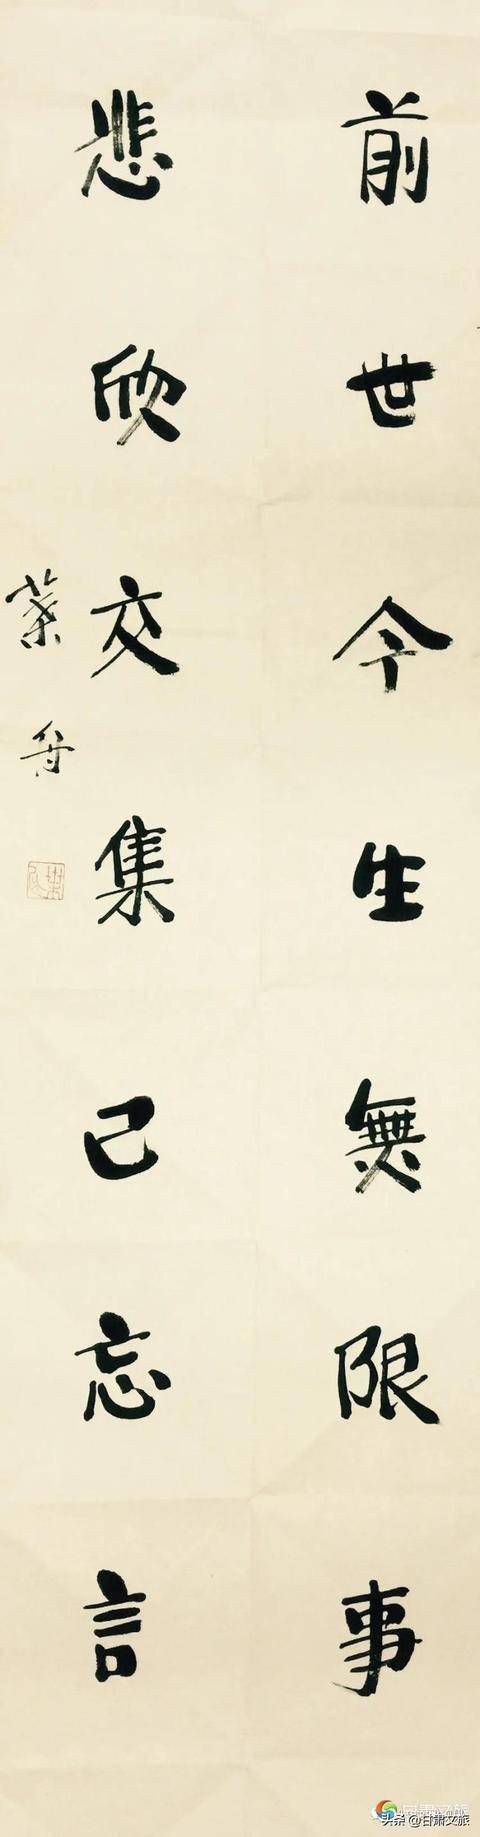 前世今生無限事
悲欣交集已忘言
葉舟
甘肃文旅
头条 @甘肃文旅